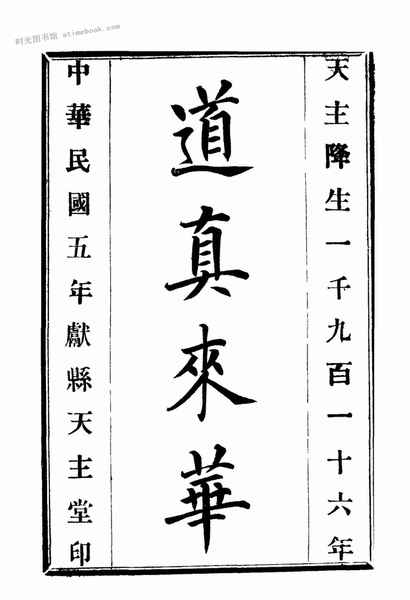 时光图书馆 - atimebook.com
天主降生一千九百一十六年
道真來華
中華民國五年獻縣天主堂印